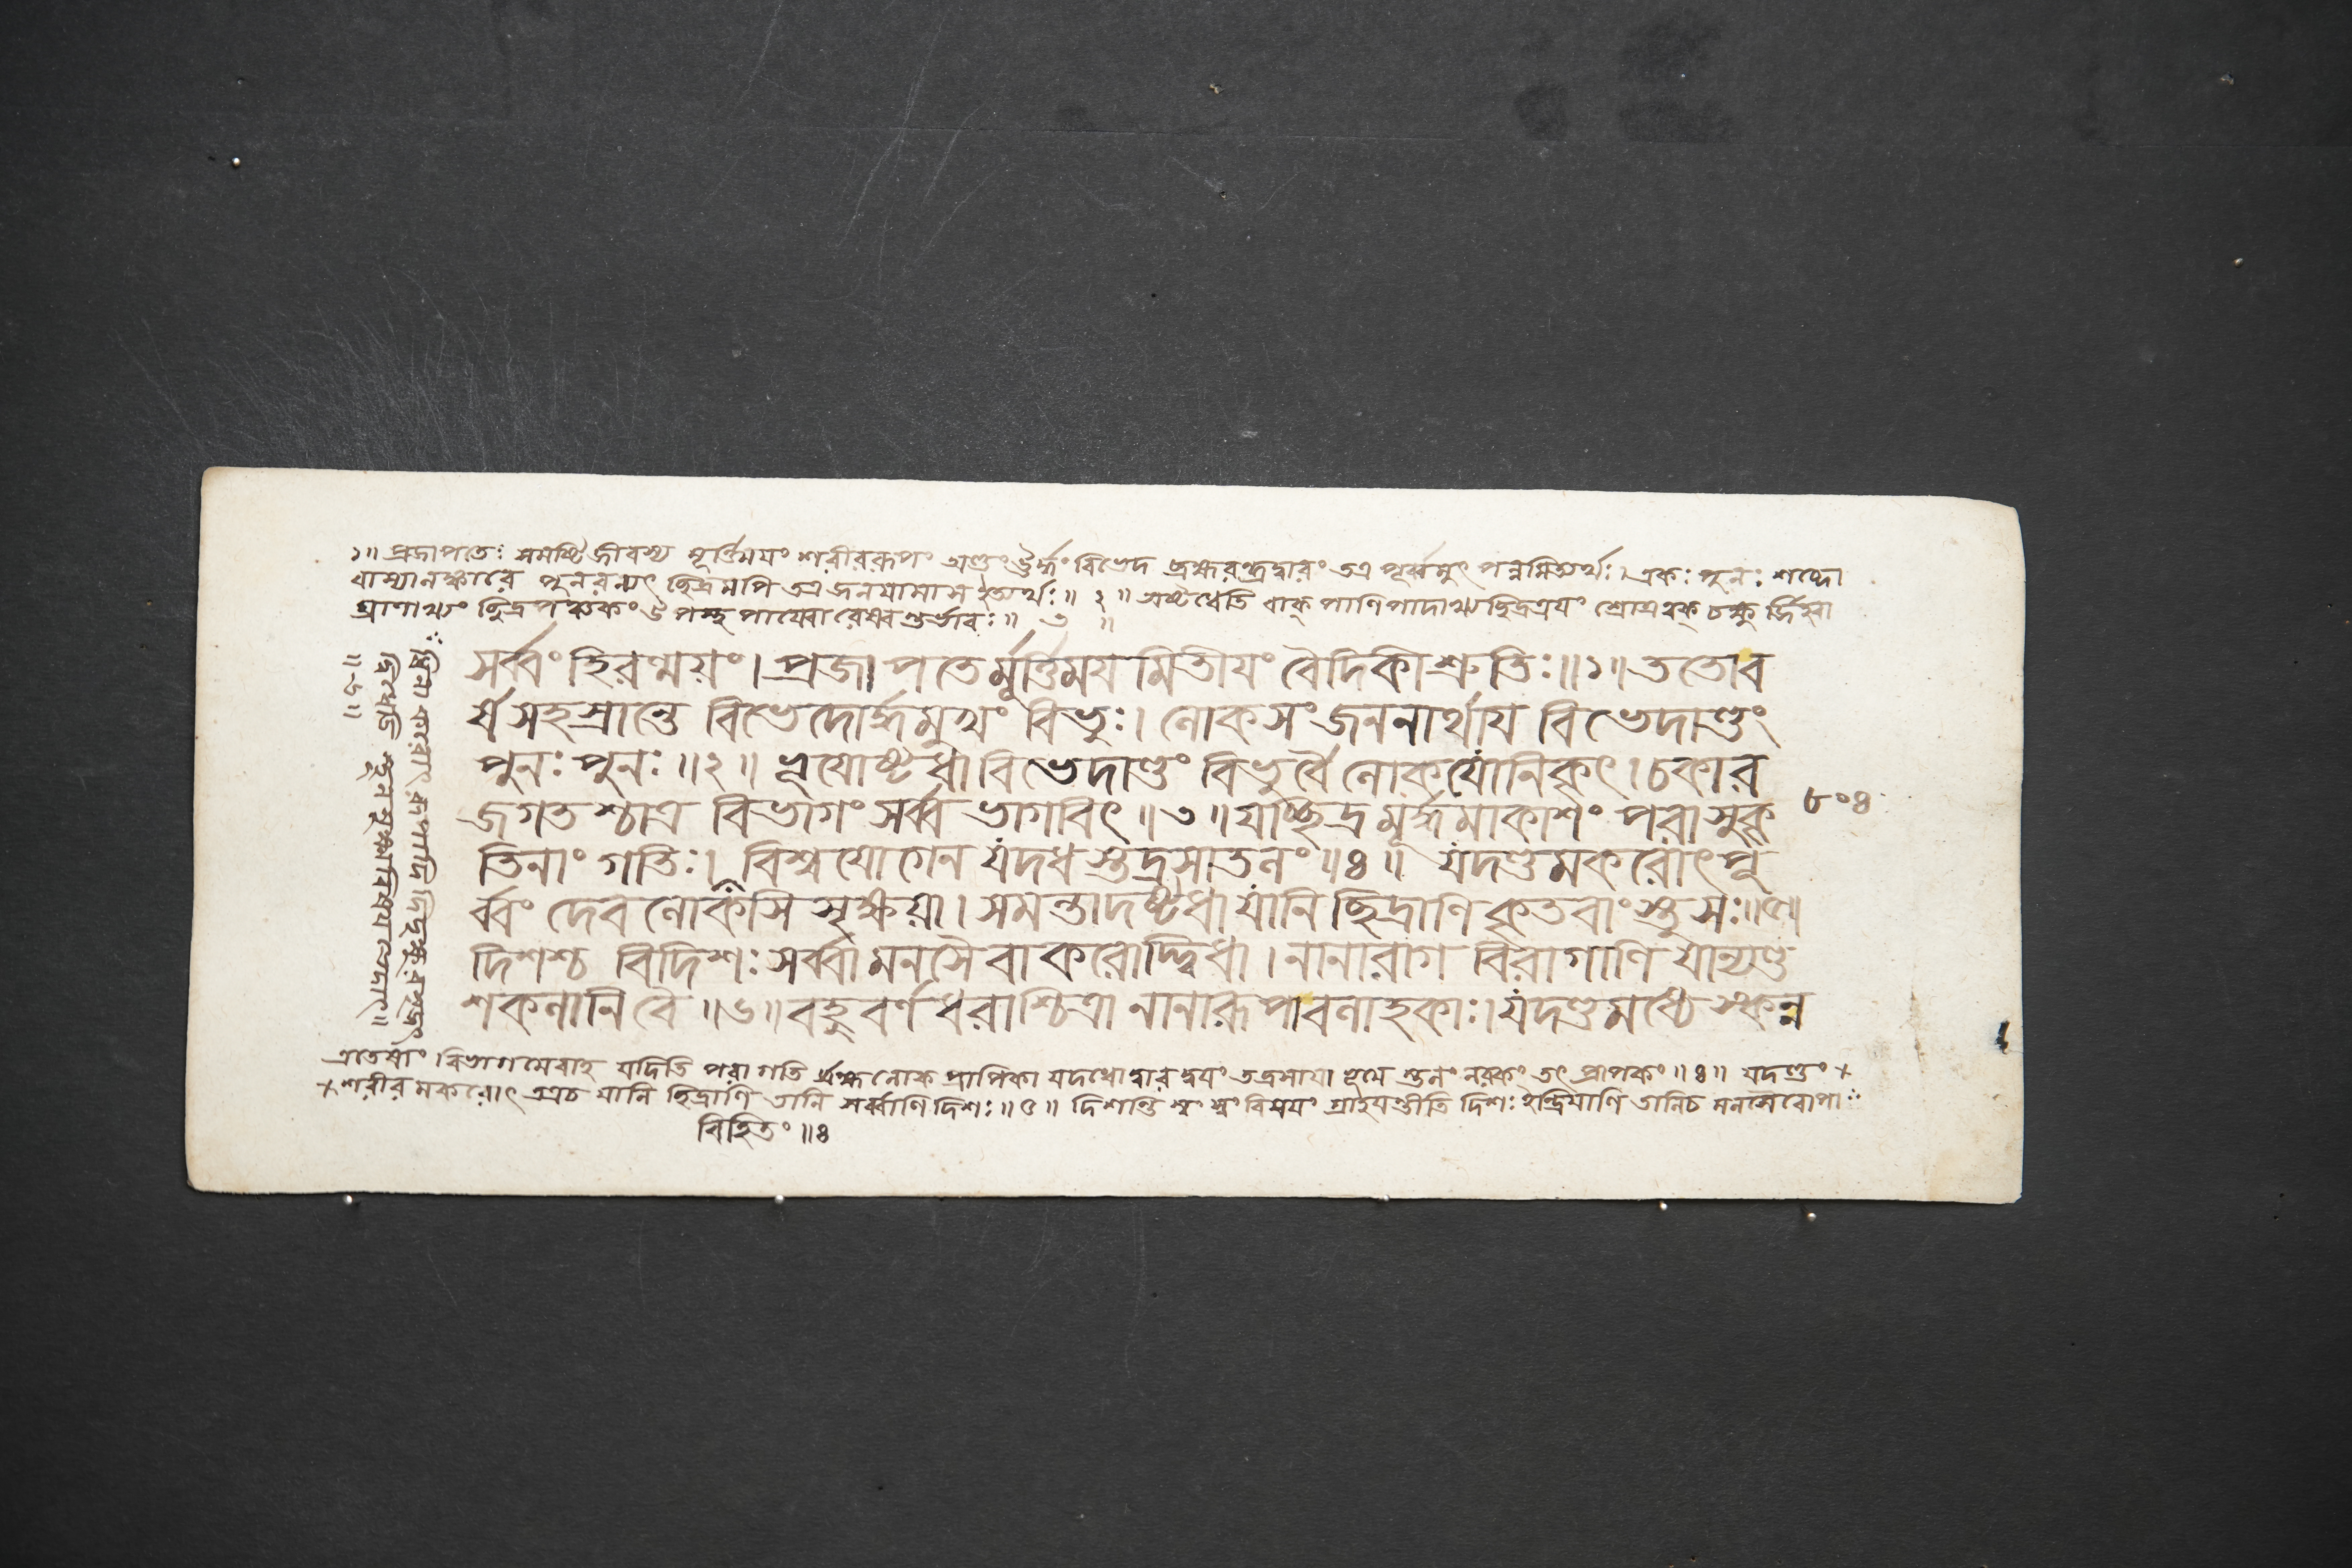 ১॥ প্রজাপতেঃ সমষ্টিজীবস্য মূর্ত্তিময়ং শরীররূপং অণ্ডং ঊর্দ্ধং বিভেদ ব্রহ্মরন্ধ্রদ্বারং তত্র পূর্ব্বমুৎপন্নমিত্যর্থঃ। একঃ পুনঃ শব্দো
বাক্যালঙ্কারে পুনরন্যৎ ছিদ্রমপি তত্র জনযামাস ইত্যর্থঃ॥ ২॥ অষ্টধেতি বাক্ পাণিপাদাখ্যছিদ্রত্রযং শ্রোত্রত্বক্ চক্ষুর্জিহ্বা
ঘ্রাণাখ্যং ছিদ্রপঞ্চকং উপস্থপায্বোরেষ্বেবান্তর্ভাবঃ॥ ৩ ॥
সর্ব্বং হিরণ্ময়ং। প্রজাপতের্মূর্ত্তিময মিতীযং বৈদিকী শ্রুতিঃ॥১॥ ততো ব
র্ষ সহস্রান্তে বিভেদোর্দ্ধমুখং বিভুঃ। লোকসংজননার্থায বিভেদাণ্ডং
পুনঃ পুনঃ॥২॥ ভূযোষ্টধা বিভেদাণ্ডং বিভুর্বৈ লোকযোনিকৃৎ। চকার
জগতশ্চাত্র বিভাগং সর্ব্ব ভাগবিৎ॥৩॥ যচ্ছিদ্র মূর্দ্ধমাকাশং পরা সুকৃ
৮০৪
তিনাং গতিঃ। বিশ্ব যোগেন যদধস্তদ্রসাতলং॥৪॥ যদণ্ডমকরোৎ পূ
র্ব্বং দেব লোক সিসৃক্ষয়া। সমন্তাদষ্টধা যানি ছিদ্রাণি কৃতবাংস্তু সঃ॥৫॥
দিশশ্চ বিদিশঃ সর্ব্বা মনসৈ বাকরোদ্দ্বিধা। নানারাগ বিরাগাণি যান্যণ্ড
শকলানি বৈ॥৬॥ বহুবর্ণ ধরাশ্চিত্রা নানারূপা বলাহকাঃ। যদণ্ডমধ্যে স্কন্ন
এতেষাং বিভাগমেবাহ যদিতি পরা গতি র্ব্রহ্মলোক প্রাপিকা যদধো দ্বার দ্বযং তদ্রসাযা স্তলং নরকং তৎ প্রাপকং॥৪॥ যদণ্ডং +
+ শরীর মকরোৎ তত্রচ যানি ছিদ্রাণি তানি সর্ব্বাণি দিশঃ॥৫॥ দিশন্তি স্বং স্বং বিষযং গ্রাহযন্তীতি দিশঃ ইন্দ্রিযাণি তানিচ মনসৈবোপা
বিহিতং॥৪
॥৬॥